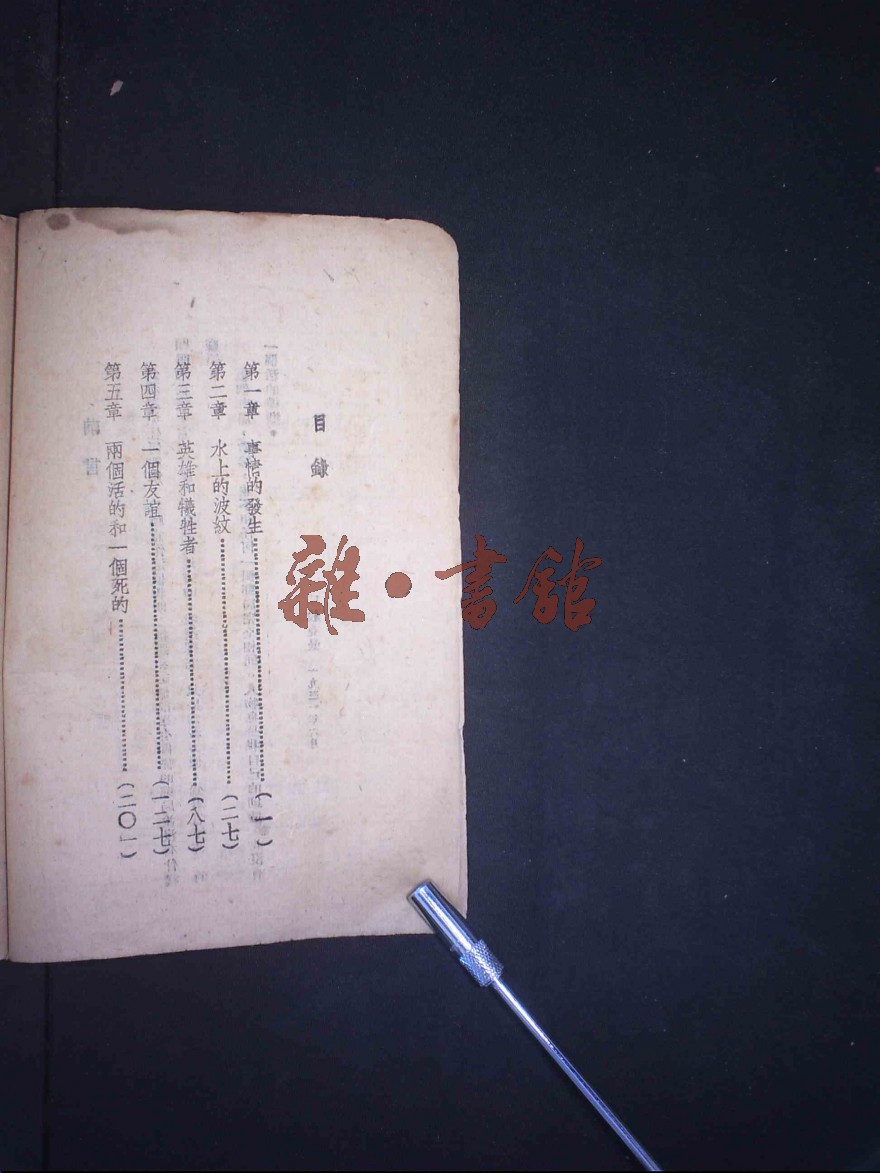 目錄
第一章 事情的發生……(一)
第二章 水上的波紋……(二七)
第三章 英雄和犧牲者……(八七)
第四章 一個友誼……(一二七)
第五章 兩個活的和一個死的……(二〇一)
雜·書館